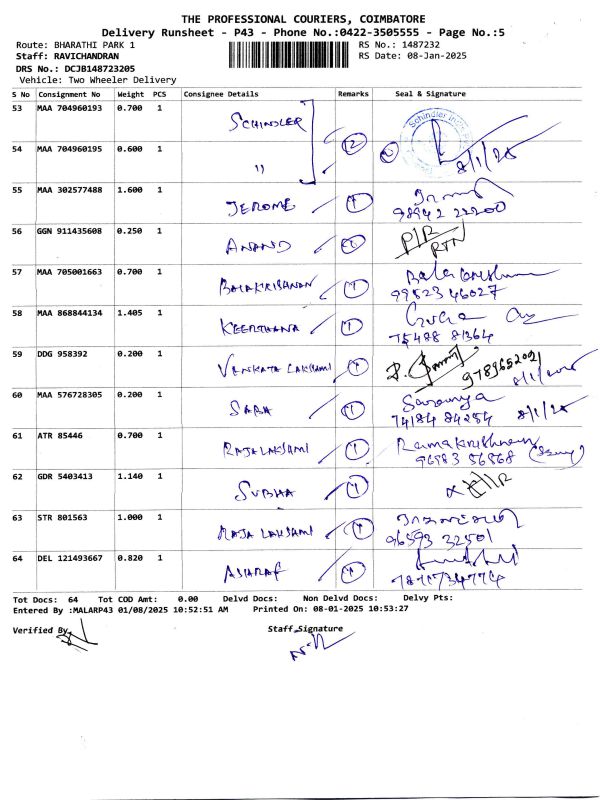 THE PROFESSIONAL COURIERS, COIMBATORE
Delivery Runsheet - P43 - Phone No.:0422-3505555 - Page No.:5
Route: BHARATHI PARK 1
RS No.: 1487232
Staff: RAVICHANDRAN
RS Date: 08-Jan-2025
DRS No.: DCJB148723205
Vehicle: Two Wheeler Delivery
S No Consignment No Weight PCS Consignee Details Remarks Seal & Signature
53 MAA 704960193 0.700 1 SCHINDLER
54 MAA 704960195 0.600 1 " 2 8/1/25
55 MAA 302577488 1.600 1 JEROME 1
98942 22200
56 GGN 911435608 0.250 1 ANAND P/R
RTN
57 MAA 705001663 0.700 1 BALAKRISHNAN 1
99523 46027
58 MAA 868844134 1.405 1 KEERTHANA 1
75488 81364
59 DDG 958392 0.200 1 VENKATA LAKSHMI 1
9789652091
60 MAA 576728305 0.200 1 SARA 1 Saranya
74184 84254 8/1/25
61 ATR 85446 0.700 1 RAJALAKSHMI 1 Ramakrishnan
96983 56868
62 GDR 5403413 1.140 1 SUBHA 1
63 STR 801563 1.000 1 RAJA LAKSHMI 1
96593 32501
64 DEL 121493667 0.820 1 ASHARAF 1
Tot Docs: 64 Tot COD Amt: 0.00 Delvd Docs: Non Delvd Docs: Delvy Pts:
Entered By :MALARP43 01/08/2025 10:52:51 AM Printed On: 08-01-2025 10:53:27
Verified By
Staff Signature